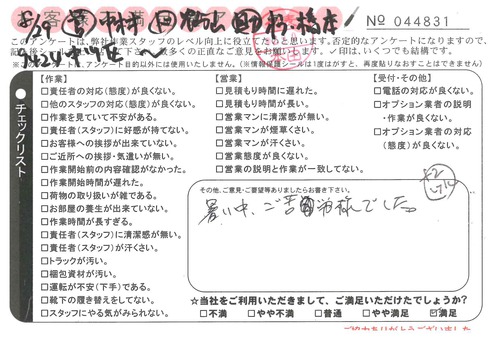 No 044831
このアンケートは、弊社作業スタッフのレベル向上に役立てたいと思います。否定的なアンケートになりますので、
記入後シールし
多くの厳正なご意見をお願いします。✓印は、いくつでも結構です。
アンケート目的以外には使用いたしません。(※情報保護シールは1度はがすと、再度貼りなおすことはできません)
チェックリスト
【作業】
□責任者の対応(態度)が良くない。
□他のスタッフの対応(態度)が良くない。
□作業を見ていて不安がある。
□責任者(スタッフ)に好感が持てない。
□お客様への挨拶が出来ていない。
□ご近所への挨拶・気遣いが無い。
□作業開始前の内容確認がなかった。
□作業開始時間が遅れた。
□荷物の取り扱いが雑である。
□お部屋の養生が出来ていない。
□作業時間が長すぎる。
□責任者(スタッフ)に清潔感が無い。
□責任者(スタッフ)が汗くさい。
□トラックが汚い。
□梱包資材が汚い。
□運転が不安(下手)である。
□靴下の履き替えをしてない。
□スタッフにやる気がみられない。
【営業】
□見積もり時間に遅れた。
□見積もり時間が長い。
□営業マンに清潔感が無い。
□営業マンが煙草くさい。
□営業マンが汗くさい。
□営業態度が良くない。
□営業の説明と作業が一致してない。
【受付・その他】
□電話の対応が良くない。
□オプション業者の説明
・作業が良くない。
□オプション業者の対応
(態度)が良くない。
その他、ご意見・ご要望等ありましたらお書き下さい。
暑い中、ご苦労様でした。
☆当社をご利用いただきまして、ご満足いただけたでしょうか?
□不満 □やや不満 □普通 □やや満足 ☑満足
ご協力ありがとうございました